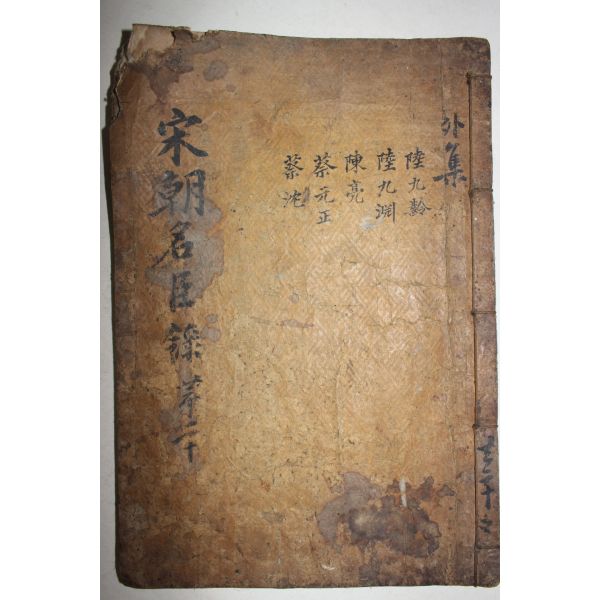 外集
陸九齡
陸九淵
陳亮
蔡元正
蔡沈
宋朝名臣錄 苐二十